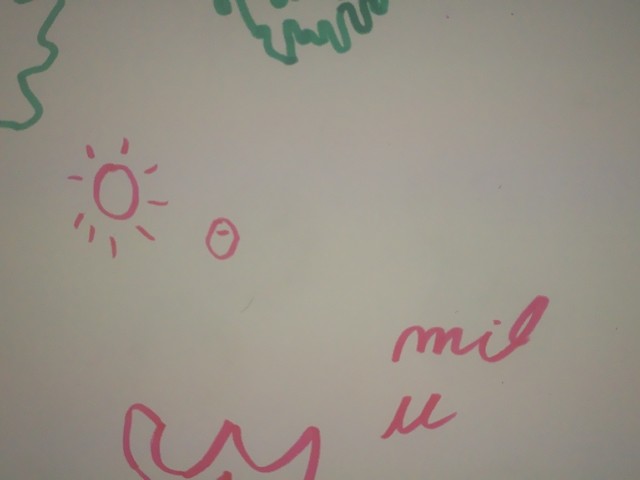 mil
u